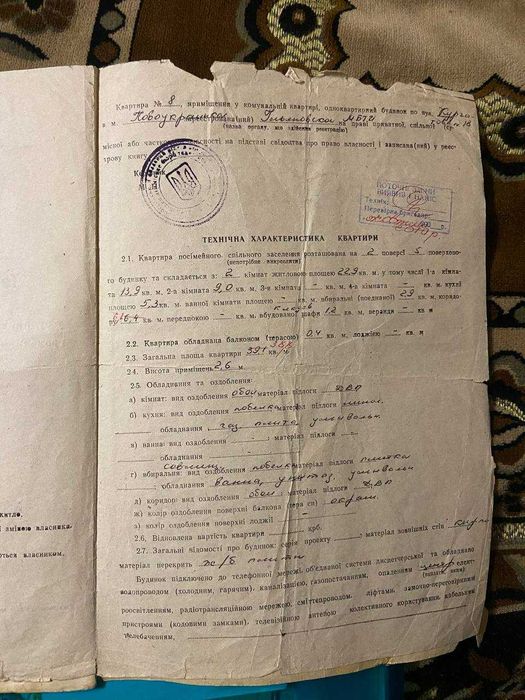 Квартира № 8, приміщення у комунальній квартирі, одноквартирний будинок по вул.
в м. Новоукраїнка
(назва органу, що здійснює реєстрацію)
на праві приватної, спільної
місної або частко на підставі свідоцтва про право власності і записана(ий) у реєс-
трову книгу
ПОТОЧНІ ЗМІНИ
Технік
Перевірив бригадир
ТЕХНІЧНА ХАРАКТЕРИСТИКА КВАРТИРИ
2.1. Квартира посімейного, спільного заселення розташована на 2 поверсі 5 поверхово-
(непотрібне викреслити)
го будинку та складається з: 2 кімнат житловою площею 22,9 кв. м, у тому числі 1-а кімна-
та 13,9 кв. м, 2-а кімната 9,0 кв. м, 3-я кімната - кв. м, 4-а кімната - кв. м, кухні
площею 5,3 кв. м, ванної кімнати площею - кв. м, вбиральні (поєднаної) 2,9 кв. м, коридо-
ру 6,4 кв. м, передпокою - кв. м, вбудованої шафи 1,2 кв. м, веранди - кв. м
2.2. Квартира обладнана балконом (терасою) 0,4 кв. м, лоджією - кв. м
2.3. Загальна площа квартири 39,1 кв. м
2.4. Висота приміщень 2,6 м.
2.5. Обладнання та оздоблення:
а) кімнат: вид оздоблення обои матеріал підлоги ДВП
б) кухня: вид оздоблення побелка матеріал підлоги линол.
обладнання газ. плита, умывальн.
в) ванна: вид оздоблення - ; матеріал підлоги -
обладнання -
г) вбиральня: вид оздоблення побелка матеріал підлоги плитка
; обладнання ванна, унитаз, умывальн
д) коридор: вид оздоблення обои матеріал підлоги ДВП
ж) колір оздоблення поверхні балкона (тераси)
з) колір оздоблення поверхні лоджії -
2.6. Відновлена вартість квартири крб.
2.7. Загальні відомості про будинок: серія проекту ; матеріал зовнішніх стін
матеріал перекрить ж/б плиты
Будинок підключено до телефонної мережі, об'єднаної системи диспетчерської та обладнано
водопроводом (холодним, гарячим), каналізацією, газопостачанням, опаленням центр. елект-
роосвітленням, радіотрансляційною мережею, сміттєпроводом, ліфтами, замочно-переговорними
пристроями (кодовими замками), телевізійною антеною колективного користування, кабельним
телебаченням,
житло.
зміною власника.
ються власником.